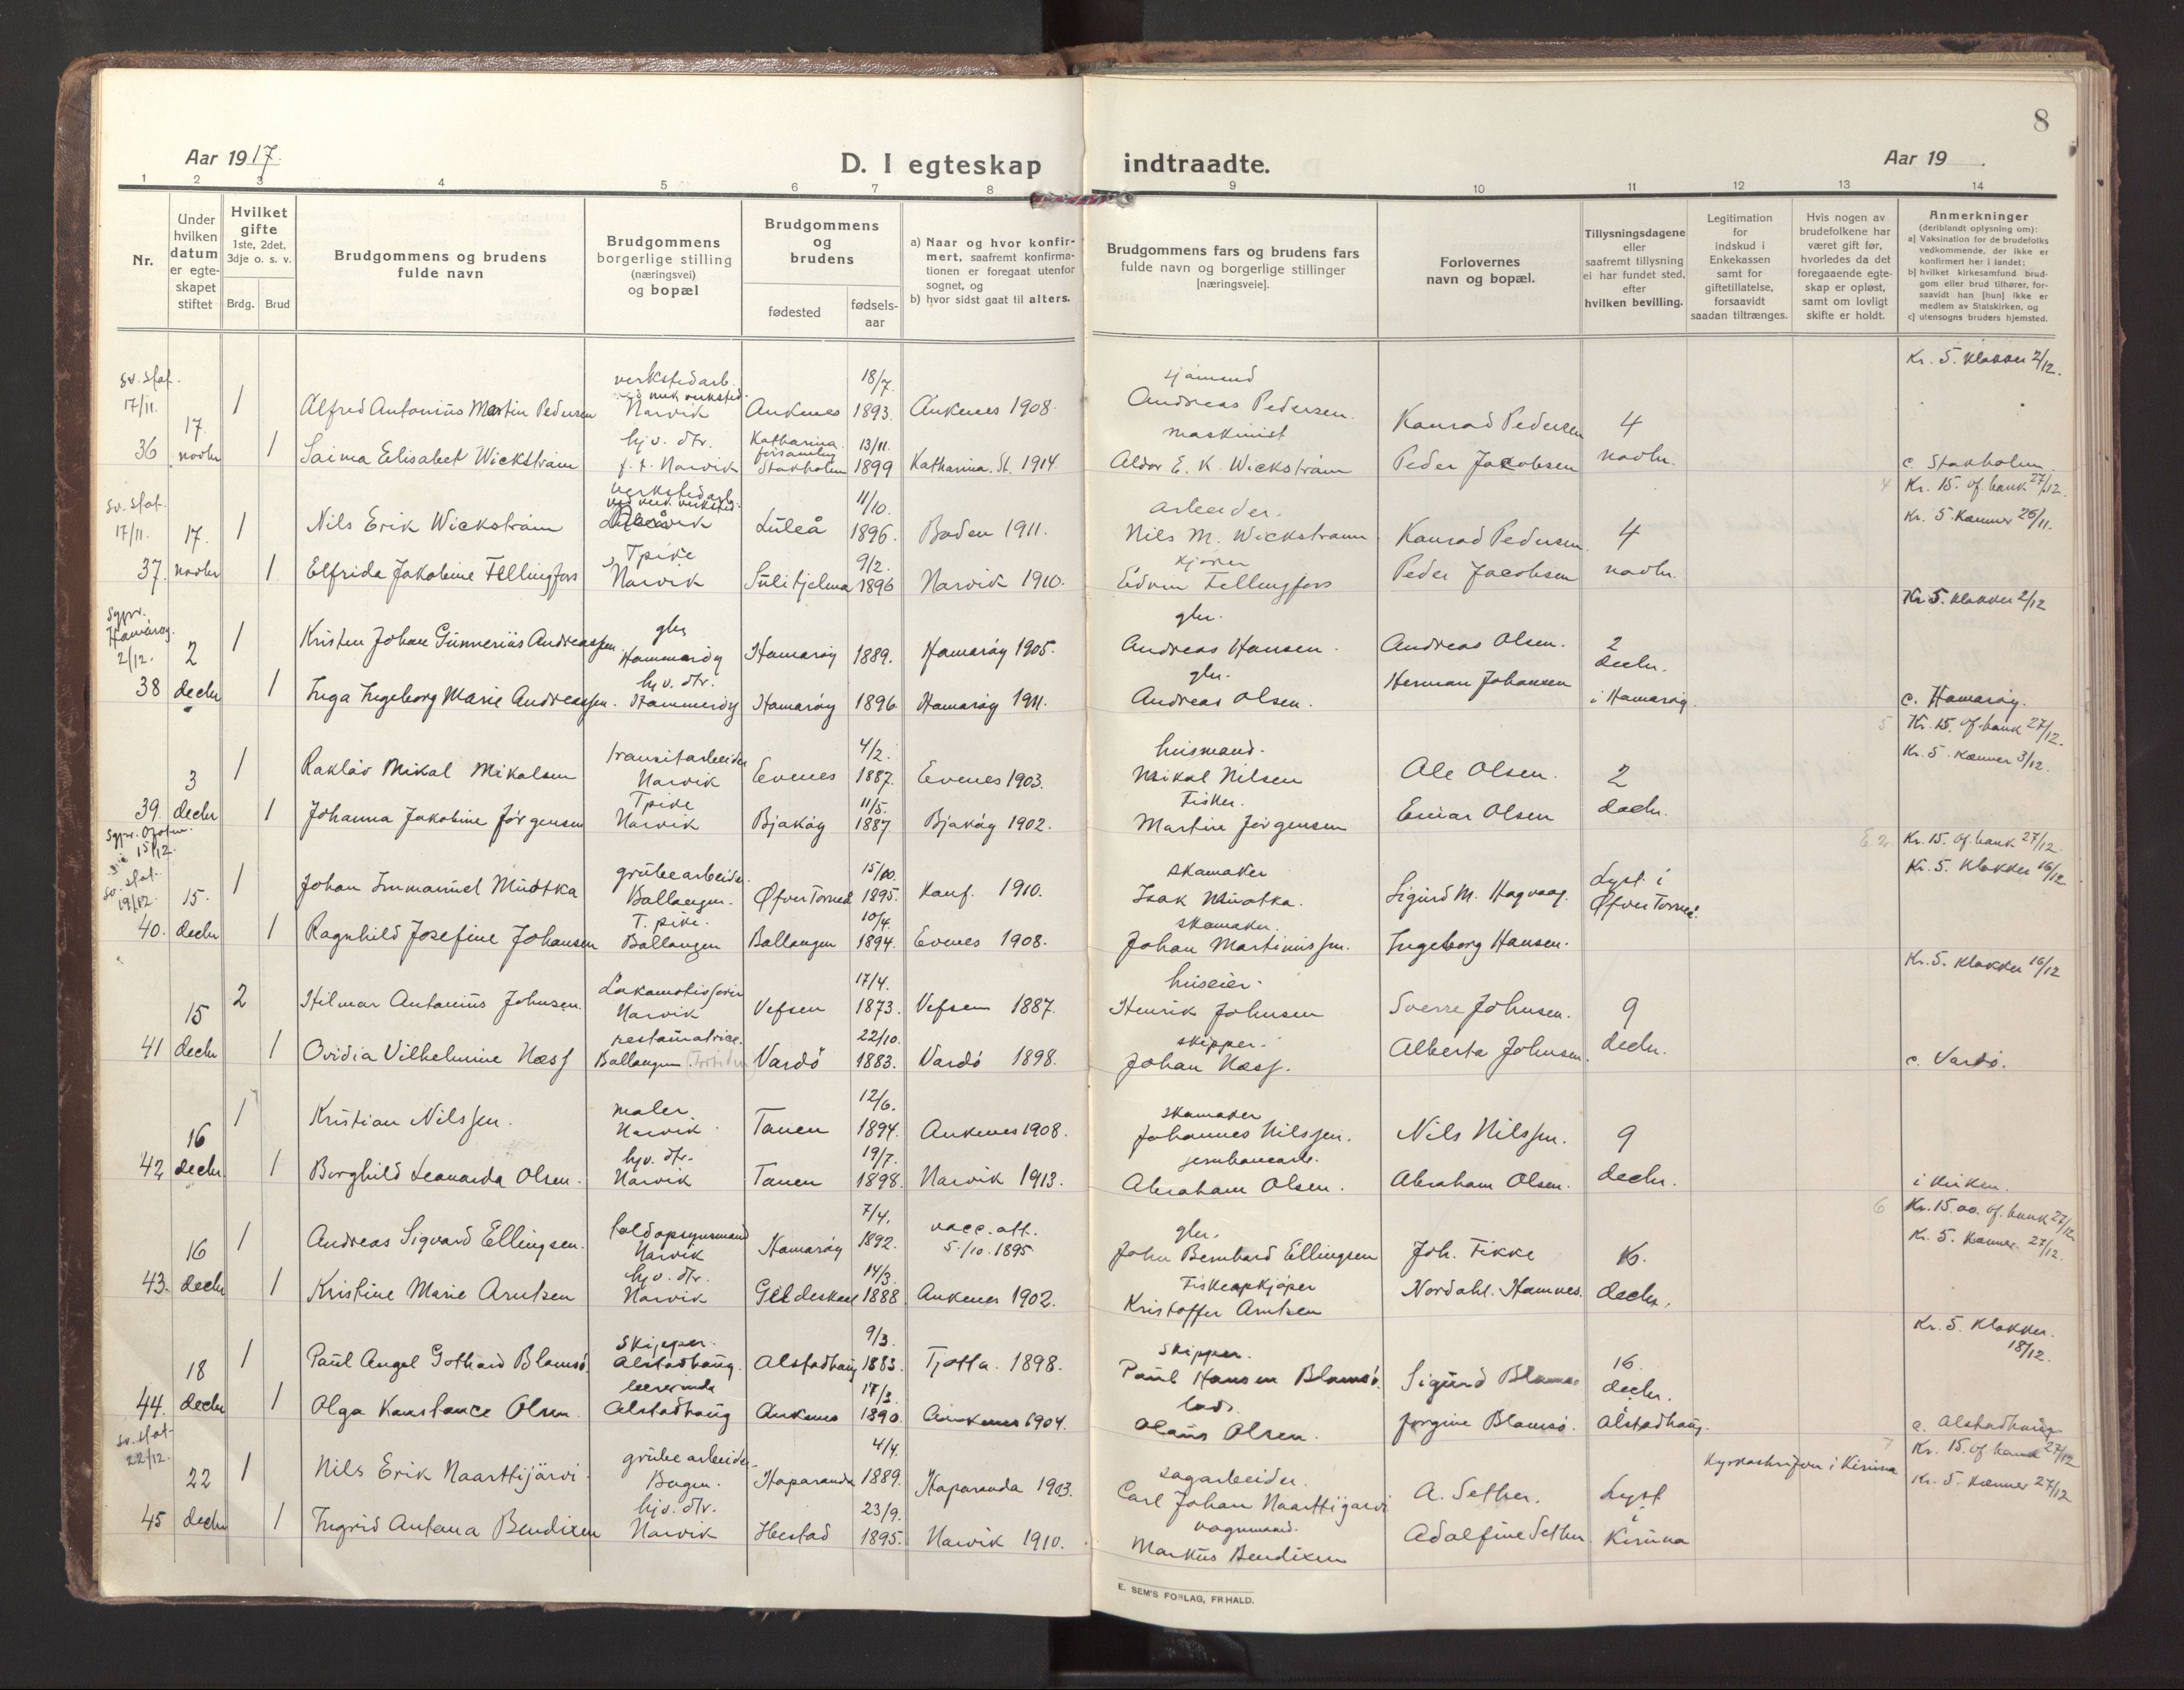 8
Aar 1917.
D. I egteskap indtraadte.
Aar 19 .
1 2 3 4 5 6 7 8 9 10 11 12 13 14
Nr.
Under hvilken datum er egte-skapet stiftet
Hvilket gifte 1ste, 2det, 3dje o. s. v.
Brdg. Brud
Brudgommens og brudens fulde navn
Brudgommens borgerlige stilling (næringsvei) og bopæl
Brudgommens og brudens
fødested fødsels-aar
a) Naar og hvor konfir-mert, saafremt konfirma-tionen er foregaat utenfor sognet, og
b) hvor sidst gaat til alters.
Brudgommens fars og brudens fars fulde navn og borgerlige stillinger [næringsveie].
Forlovernes navn og bopæl.
Tillysningsdagene eller saafremt tillysning ei har fundet sted, efter hvilken bevilling.
Legitimation for indskud i Enkekassen samt for giftetillatelse, forsaavidt saadan tiltrænges.
Hvis nogen av brudefolkene har været gift før, hvorledes da det foregaaende egte-skap er opløst, samt om lovligt skifte er holdt.
Anmerkninger
(deriblandt oplysning om):
a] Vaksination for de brudefolks vedkommende, der ikke er konfirmert her i landet;
b] hvilket kirkesamfund brud-gom eller brud tilhører, for-saavidt han [hun] ikke er medlem av Statskirken, og
c] utensogns bruders hjemsted.
Kr. 5. klokker 2/12.
sv. stat. 17/11.
verkstedarb. 18/7. sjømand
1 Alfred Antonius Martin Pedersen Narvik Ankenes 1893. Ankenes 1908. Andreas Pedersen. Konrad Pedersen 4
17. hjv. dtr. Katharina forsamling 13/11. maskinist
36 novbr 1 Saima Elisabet Wickstrøm f. t. Narvik Stokholm 1899 Katharina. St. 1914. Aldor E. K. Wickstrøm Peder Jacobsen novbr. c. Stokholm.
4 Kr. 15. of. bank 27/12.
sv. stat. 17/11.
verkstedarb. 11/10. arbeider. Kr. 5. kæmner 25/11.
17. 1 Nils Erik Wickstrøm Narvik Luleå 1896. Boden 1911. Nils M. Wickstrøm Konrad Pedersen. 4
Tpike 9/2. kjører
37. novbr 1 Elfrida Jakobine Fellingfors Narvik Sulitjelma 1896 Narvik 1910. Edvin Fellingfors Peder Jacobsen novbr.
Kr. 5. klokker 2/12
sypr. Hamarøy. 2/12.
gbr. gbr.
2 1 Kristen Johan Gunnerius Andreassen Hammerøy Hamarøy 1889. Hamarøy 1905. Andreas Hansen. Andreas Olsen. 2
hjv. dtr. gbr. decbr.
38 decbr 1 Inga Ingeborg Marie Andreassen. Hammerøy Hamarøy 1896 Hamarøy 1911. Andreas Olsen. Herman Johansen i Hamarøy. c. Hamarøy.
5 Kr. 15. of. bank 27/12.
transitarbeider 4/2. husmand. Kr. 5. kæmner 3/12.
3 1 Mikal Mikalsen Narvik Evenes 1887. Evenes 1903. Mikal Nilsen Ole Olsen. 2
Tpike 11/5. Fisker.
39. decbr 1 Johanna Jakobine Jørgensen Narvik Bjarkøy 1887 Bjarkøy 1902. Martin Jørgensen Einar Olsen decbr.
15/12.
Kr. 15. of. bank 27/12.
sv. stat. 19/12.
grubearbeider 15/10. skomaker Kr. 5. klokker 16/12.
15. 1 Johan Immanuel Muotka Ballangen. ØfverTorneå 1895. Konf. 1910. Isak Muotka. Sigurd M. Hagvaag. Lyst i ØfverTorneå.
T. pike. 10/4. skomaker.
40. decbr 1 Ragnhild Josefine Johansen Ballangen Ballangen 1894. Evenes 1908. Johan Martinussen. Ingeborg Hansen.
Kr. 5. klokker 16/12
Lokomotivfører 17/4. huseier.
15 2 Hilmar Antonius Johnsen. Narvik Vefsen 1873. Vefsen 1887. Henrik Johnsen Sverre Johnsen. 9
restauratrice. 22/10. skipper.
41 decbr 1 Ovidia Vilhelmine Næss Ballangen Vardø 1883. Vardø 1898. Johan Næss. Alberta Johnsen. decbr. c. Vardø.
maler 12/6. skomaker
16 1 Kristian Nilssen. Narvik. Tanen 1894. Ankenes 1908. Johannes Nilssen. Nils Nilssen. 9
hjv. dtr. 19/7. jernbanearb.
42 decbr. 1 Borghild Leonarda Olsen. Narvik Tanen 1898. Narvik 1913. Abraham Olsen. Abraham Olsen. decbr. i kirken.
6 Kr. 15.00. of. bank 27/12
toldopsynsmand 7/4. vacc. att. gbr. Kr. 5. kæmner. 27/12.
16 1 Andreas Sigvard Ellingsen. Narvik Hamarøy 1892. 5/10. 1895 John Bernhard Ellingsen Joh. Fikke 16.
hjv. dtr. 14/3. Fiskeopkjøper
43. decbr 1 Kristine Marie Arntsen Narvik Gildeskaal 1888 Ankenes 1902. Kristoffer Arntsen Nordahl. Hamnes. decbr.
Kr. 5. klokker. 18/12.
skipper. 9/3. skipper.
18 1 Paul Angel Gothard Blomsø. Alstadhaug. Alstadhaug 1883. Tjøtta. 1898. Paul Hansen Blomsø. Sigurd Blomsø 16. decbr.
lærerinde 17/3. lods.
44. decbr 1 Olga Konstance Olsen. Alstadhaug Ankenes 1890. Ankenes 1904. Olaus Olsen. Jørgine Blomsø. i Alstadhaug. c. Alstadhaug
7 Kr. 15. of bank 27/12
sv. stat. 22/12.
grubearbeider. 4/4. sagarbeider. Kyrkoskrifven i Kiruna Kr. 5. kæmner 27/12
22 1 Nils Erik Naarttijärvi. Bogen. Haparanda 1889. Haparanda 1903. Carl Johan Naarttijarvi A. Sether. Lyst
hjv. dtr. 23/9. vognmand. i
45 decbr 1 Ingrid Antona Bendixen Narvik Ibestad 1895. Narvik 1910. Markus Bendixen Adolfine Sether. Kiruna
E. SEM'S FORLAG, FR.HALD.